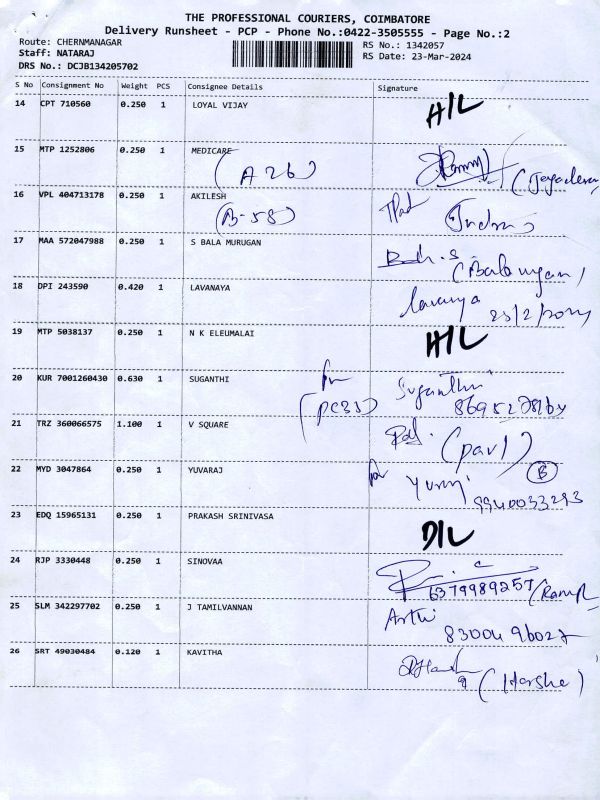 THE PROFESSIONAL COURIERS, COIMBATORE
Delivery Runsheet - PCP - Phone No.:0422-3505555 - Page No.:2
Route: CHERNMANAGAR
Staff: NATARAJ
DRS No.: DCJB134205702
RS No.: 1342057
RS Date: 23-Mar-2024
S No Consignment No Weight PCS Consignee Details Signature
14 CPT 710560 0.250 1 LOYAL VIJAY H/L
15 MTP 1252806 0.250 1 MEDICARE
(A 26)
16 VPL 404713178 0.250 1 AKILESH
(B-58)
17 MAA 572047988 0.250 1 S BALA MURUGAN
(Balamurgan)
18 DPI 243590 0.420 1 LAVANAYA Lavanya
23/2/2024
19 MTP 5038137 0.250 1 N K ELEUMALAI H/L
20 KUR 7001260430 0.630 1 SUGANTHI Suganthi
21 TRZ 360066575 1.100 1 V SQUARE
(paul)
22 MYD 3047864 0.250 1 YUVARAJ
9940033293
23 EDQ 15965131 0.250 1 PRAKASH SRINIVASA D/L
24 RJP 3330448 0.250 1 SINOVAA
6379989257
25 SLM 342297702 0.250 1 J TAMILVANNAN Arthi
8300496027
26 SRT 49030484 0.120 1 KAVITHA
(Harsha)